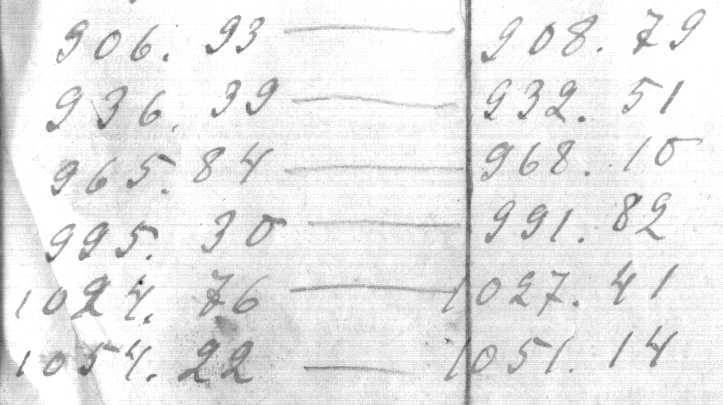 906. 93 — 908. 79
936. 39 — 932. 51
965. 84 — 968. 10
995. 30 — 991. 82
1024. 76 — 1027. 41
1054. 22 — 1051. 14